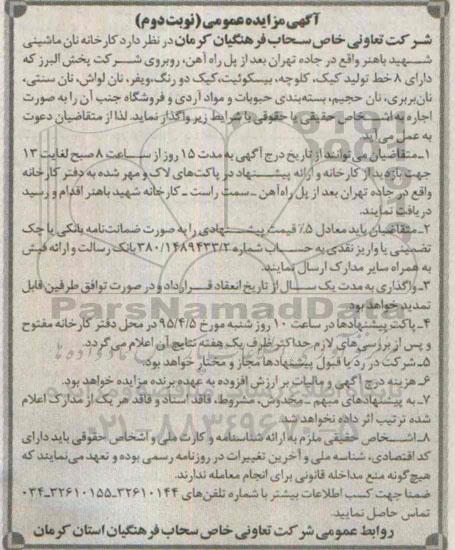 آگهی مزایده عمومی (نوبت دوم)
شرکت تعاونی خاص سحاب فرهنگیان کرمان در نظر دارد کارخانه نان ماشینی
شهید باهنر واقع در جاده تهران بعد از پل راه آهن، روبروی شرکت پخش البرز که
دارای ۸ خط تولید کیک، کلوچه، بیسکوئیت، کیک دو رنگ، ویفر، نان لواش، نان سنتی،
نان بربری، نان حجیم، بسته‌بندی حبوبات و مواد آردی و فروشگاه جنب آن را به صورت
اجاره به اشخاص حقیقی یا حقوقی با شرایط زیر واگذار نماید. لذا از متقاضیان دعوت
به عمل می‌آید.
۱ـ متقاضیان می‌توانند از تاریخ درج آگهی به مدت ۱۵ روز از ساعت ۸ صبح لغایت ۱۳
جهت بازدید از کارخانه و ارائه پیشنهاد در پاکت‌های لاک و مهر شده به دفتر کارخانه
واقع در جاده تهران بعد از پل راه‌آهن ـ سمت راست ـ کارخانه شهید باهنر اقدام و رسید
دریافت نمایند.
۲ـ متقاضیان باید معادل ۵٪ قیمت پیشنهادی را به صورت ضمانت‌نامه بانکی یا چک
تضمینی یا واریز نقدی به حساب شماره ۳۸۰/۱۴۸۹۴۳۳/۲ بانک رسالت و ارائه فیش
به همراه سایر مدارک ارسال نمایند.
۳ـ واگذاری به مدت یک سال از تاریخ انعقاد قرارداد و در صورت توافق طرفین قابل
تمدید خواهد بود.
۴ـ پاکت پیشنهادها در ساعت ۱۰ روز شنبه مورخ ۹۵/۴/۵ در محل دفتر کارخانه مفتوح
و پس از بررسی‌های لازم حداکثر ظرف یک هفته نتایج آن اعلام می‌گردد.
۵ـ شرکت در رد یا قبول پیشنهادها مجاز و مختار خواهد بود.
۶ـ هزینه درج آگهی و مالیات بر ارزش افزوده به عهده برنده مزایده خواهد بود.
۷ـ به پیشنهادهای مبهم ـ مخدوش، مشروط، فاقد اسناد و فاقد هر یک از مدارک اعلام
شده ترتیب اثر داده نخواهد شد.
۸ـ اشخاص حقیقی ملزم به ارائه شناسنامه و کارت ملی و اشخاص حقوقی باید دارای
کد اقتصادی، شناسه ملی و آخرین تغییرات در روزنامه رسمی بوده و تعهد می‌نمایند که
هیچگونه منع مداخله قانونی برای انجام معامله ندارند.
ضمنا جهت کسب اطلاعات بیشتر با شماره تلفن‌های ۳۲۶۱۰۱۴۴ـ۳۲۶۱۰۱۵۵ـ۰۳۴
تماس حاصل نمایید.
روابط عمومی شرکت تعاونی خاص سحاب فرهنگیان استان کرمان
ParsNamadData
۰۲۱-۸۸۳۴۹۶۷۰-۵